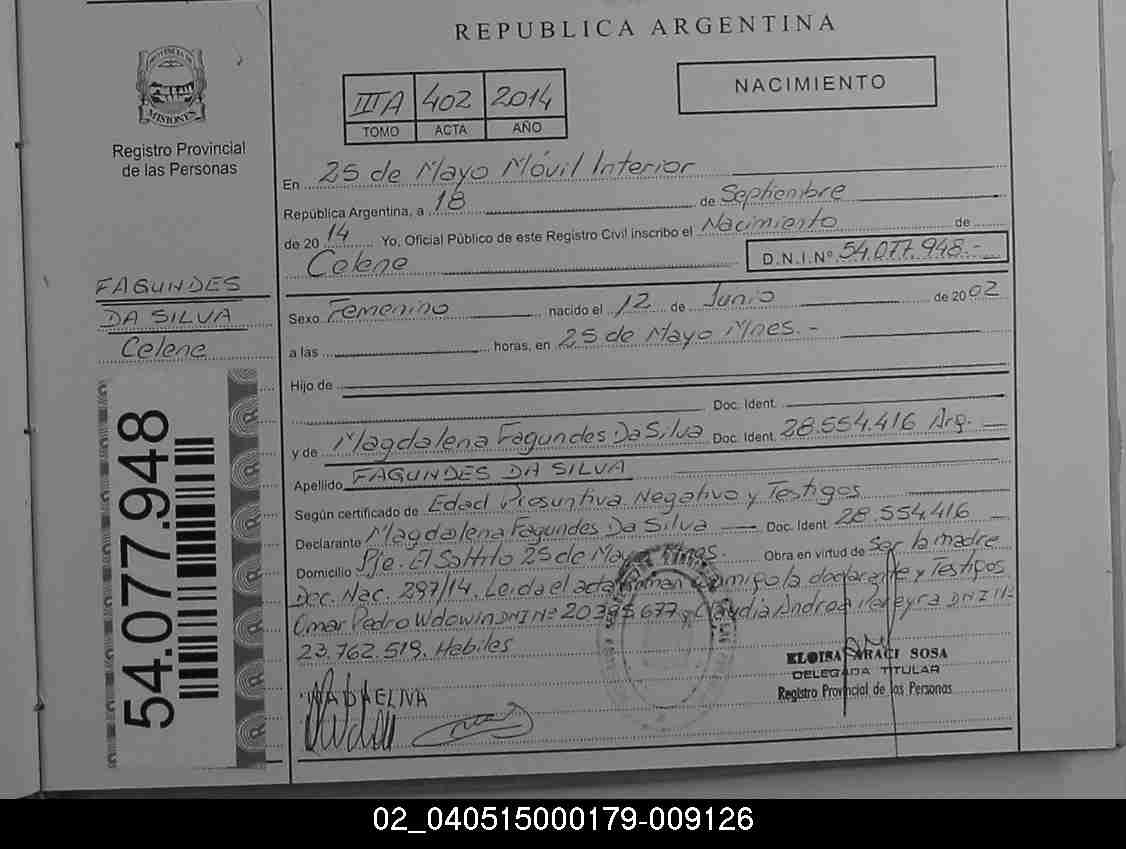 REPUBLICA ARGENTINA
PROVINCIA DE
MISIONES
Registro Provincial
de las Personas
IIIA 402 2014
TOMO ACTA AÑO
NACIMIENTO
En 25 de Mayo Móvil Interior
República Argentina, a 18 de Septiembre
de 2014 Yo, Oficial Público de este Registro Civil inscribo el Nacimiento de
Celene D.N.I.Nº 54.077.948.-
FAGUNDES
DA SILVA
Celene
Sexo Femenino nacido el 12 de Junio de 2002
a las horas, en 25 de Mayo Mnes.-
Hijo de
Doc. Ident.
y de Magdalena Fagundes Da Silva Doc. Ident. 28.554.416 Arg.
Apellido FAGUNDES DA SILVA
Según certificado de Edad Presuntiva Negativo y Testigos
Declarante Magdalena Fagundes Da Silva Doc. Ident. 28.554.416
Domicilio Pje. El Saltito 25 de Mayo Mnes. Obra en virtud de Ser la madre
Dec. Nac. 297/14. Leida el acta firman conmigo la declarante y Testigos
Omar Pedro Wdowin DNI Nº 20.395.677 y Claudia Andrea Pereyra DNI Nº
23.762.519. Hebiles
54.077.948
ELOISA ARACI SOSA
DELEGADA TITULAR
Registro Provincial de las Personas
02_040515000179-009126